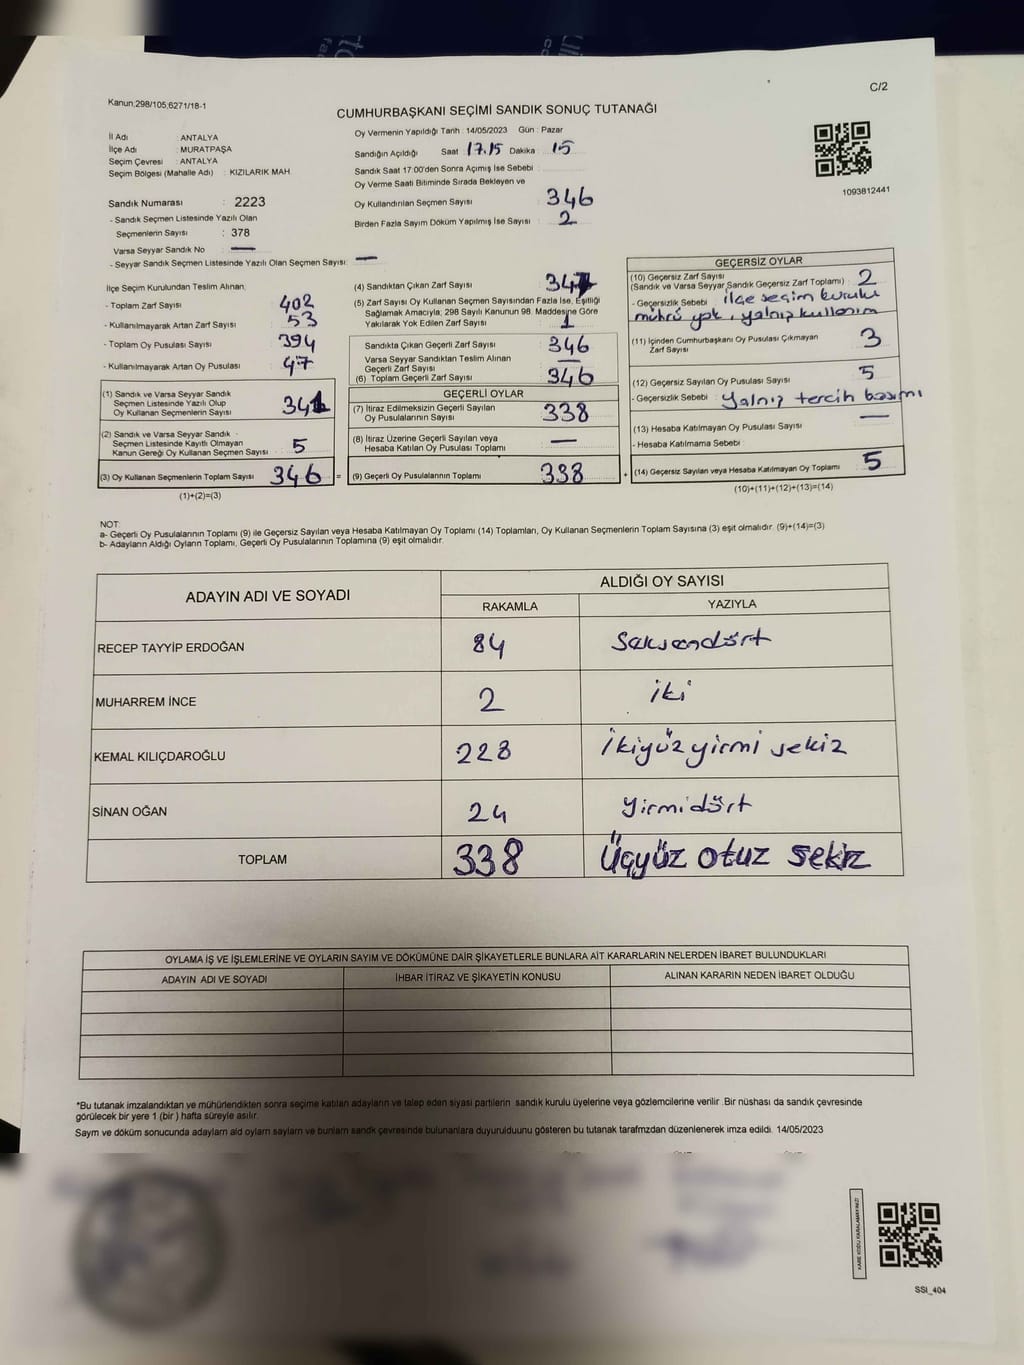 C/2
Kanun,298/105,6271/18-1
CUMHURBAŞKANI SEÇİMİ SANDIK SONUÇ TUTANAĞI
İl Adı : ANTALYA
İlçe Adı : MURATPAŞA
Seçim Çevresi : ANTALYA
Seçim Bölgesi (Mahalle Adı) : KIZILARIK MAH.
Sandık Numarası : 2223
- Sandık Seçmen Listesinde Yazılı Olan
Seçmenlerin Sayısı : 378
Varsa Seyyar Sandık No —
- Seyyar Sandık Seçmen Listesinde Yazılı Olan Seçmen Sayısı: —
Oy Vermenin Yapıldığı Tarih : 14/05/2023 Gün : Pazar
Sandığın Açıldığı Saat 17.15 Dakika : 15
Sandık Saat 17:00'den Sonra Açımış İse Sebebi :
Oy Verme Saati Bitiminde Sırada Bekleyen ve
Oy Kullandırılan Seçmen Sayısı : 346
Birden Fazla Sayım Döküm Yapılmış İse Sayısı : 2
1093812441
İlçe Seçim Kurulundan Teslim Alınan;
- Toplam Zarf Sayısı : 402
- Kullanılmayarak Artan Zarf Sayısı : 53
- Toplam Oy Pusulası Sayısı : 394
- Kullanılmayarak Artan Oy Pusulası : 47
(1) Sandık ve Varsa Seyyar Sandık
Seçmen Listesinde Yazılı Olup
Oy Kullanan Seçmenlerin Sayısı : 341
(2) Sandık ve Varsa Seyyar Sandık
Seçmen Listesinde Kayıtlı Olmayan
Kanun Gereği Oy Kullanan Seçmen Sayısı : 5
(3) Oy Kullanan Seçmenlerin Toplam Sayısı : 346
(1)+(2)=(3)
(4) Sandıktan Çıkan Zarf Sayısı : 347
(5) Zarf Sayısı Oy Kullanan Seçmen Sayısından Fazla İse, Eşitliği
Sağlamak Amacıyla; 298 Sayılı Kanunun 98. Maddesine Göre
Yakılarak Yok Edilen Zarf Sayısı : 1
Sandıkta Çıkan Geçerli Zarf Sayısı : 346
Varsa Seyyar Sandıktan Teslim Alınan
Geçerli Zarf Sayısı : —
(6) Toplam Geçerli Zarf Sayısı : 346
GEÇERLİ OYLAR
(7) İtiraz Edilmeksizin Geçerli Sayılan
Oy Pusulalarının Sayısı : 338
(8) İtiraz Üzerine Geçerli Sayılan veya
Hesaba Katılan Oy Pusulası Toplamı : —
= (9) Geçerli Oy Pusulalarının Toplamı : 338
GEÇERSİZ OYLAR
(10) Geçersiz Zarf Sayısı
(Sandık ve Varsa Seyyar Sandık Geçersiz Zarf Toplamı) : 2
- Geçersizlik Sebebi : ilçe seçim kurulu
mührü yok, yalnız kullanım
(11) İçinden Cumhurbaşkanı Oy Pusulası Çıkmayan
Zarf Sayısı : 3
(12) Geçersiz Sayılan Oy Pusulası Sayısı : 5
- Geçersizlik Sebebi : Yalnız tercih basımı
(13) Hesaba Katılmayan Oy Pusulası Sayısı : —
- Hesaba Katılmama Sebebi :
+ (14) Geçersiz Sayılan veya Hesaba Katılmayan Oy Toplamı : 5
(10)+(11)+(12)+(13)=(14)
NOT:
a- Geçerli Oy Pusulalarının Toplamı (9) ile Geçersiz Sayılan veya Hesaba Katılmayan Oy Toplamı (14) Toplamları, Oy Kullanan Seçmenlerin Toplam Sayısına (3) eşit olmalıdır. (9)+(14)=(3)
b- Adayların Aldığı Oyların Toplamı, Geçerli Oy Pusulalarının Toplamına (9) eşit olmalıdır.
ADAYIN ADI VE SOYADI
ALDIĞI OY SAYISI
RAKAMLA YAZIYLA
RECEP TAYYİP ERDOĞAN 84 Seksendört
MUHARREM İNCE 2 iki
KEMAL KILIÇDAROĞLU 228 İkiyüz yirmi sekiz
SİNAN OĞAN 24 Yirmidört
TOPLAM 338 Üçyüz otuz sekiz
OYLAMA İŞ VE İŞLEMLERİNE VE OYLARIN SAYIM VE DÖKÜMÜNE DAİR ŞİKAYETLERLE BUNLARA AİT KARARLARIN NELERDEN İBARET BULUNDUKLARI
ADAYIN ADI VE SOYADI İHBAR İTİRAZ VE ŞİKAYETİN KONUSU ALINAN KARARIN NEDEN İBARET OLDUĞU
*Bu tutanak imzalandıktan ve mühürlendikten sonra seçime katılan adayların ve talep eden siyasi partilerin sandık kurulu üyelerine veya gözlemcilerine verilir. Bir nüshası da sandık çevresinde
görülecek bir yere 1 (bir) hafta süreyle asılır.
Sayım ve döküm sonucunda adayların ald oyların sayıları ve bunların sandık çevresinde bulunanlara duyurulduunu gösteren bu tutanak tarafmzdan düzenlenerek imza edildi. 14/05/2023
KARE KODU KARALAMAYINIZ!
SSI_404